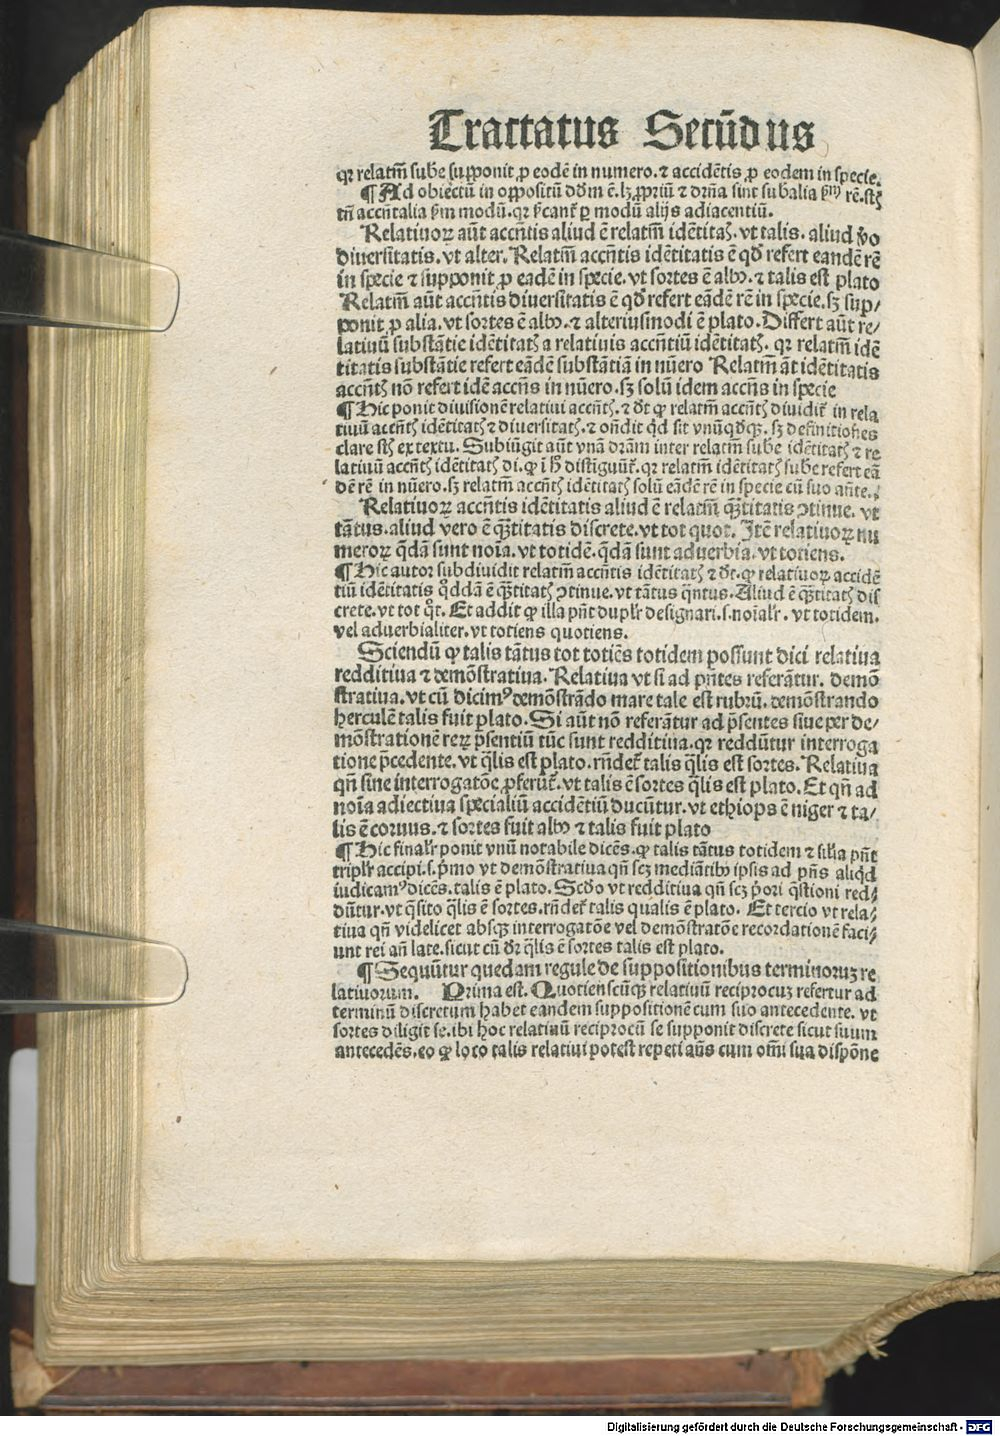 Tractatus Secũdus
qꝛ relatm̃ sube supponit ꝓ eodẽ in numero. ⁊ accidẽtis ꝓ eodem in specie.
¶ Ad obiectũ in oppositũ dd̃m ẽ. lꝫ ꝓpriũ ⁊ dr̃na sint subalia rẽ.
tñ accñtalia modũ. qꝛ ꝑ modũ alijs adiacentiũ.
Relatiuoꝝ aũt accñtis aliud ẽ relatm̃ idẽtitaꝭ. vt talis. aliud ṽo
diuersitatis. vt alter. Relatm̃ accñtis idẽtitatis ẽ qd̃ refert eandẽ rẽ
in specie ⁊ supponit ꝓ eadẽ in specie. vt sortes ẽ albꝰ. ⁊ talis est plato
Relatm̃ aũt accñtis diuersitatis ẽ qd̃ refert eãdẽ rẽ in specie. sꝫ sup/
ponit ꝓ alia. vt sortes ẽ albꝰ. ⁊ alteriusmodi ẽ plato. Differt aũt re/
latiuũ substãtie idẽtitatꝭ a relatiuis accñtiũ idẽtitatꝭ. qꝛ relatm̃ idẽ
titatis substãtie refert eãdẽ substãtiã in nũero Relatm̃ ãt idẽtitatis
accñtꝭ nõ refert idẽ accñs in nũero. sꝫ solũ idem accñs in specie
¶ Hic ponit diuisionẽ relatiui accñtꝭ. ⁊ dt̃ ꝙ relatm̃ accñtꝭ diuidit̃ in rela
tiuũ accñtꝭ idẽtitatꝭ ⁊ diuersitatꝭ. ⁊ oñdit qd̃ sit vnũqd̃qꝫ. sꝫ definitiões
clare stꝭ ex textu. Subiũgit aũt vnã dr̃am inter relatm̃ sube idẽtitatꝭ ⁊ re
latiuũ accñtꝭ idẽtitatꝭ di. ꝙ ĩ h̃ distĩguũt̃. qꝛ relatm̃ idẽtitatꝭ sube refert eã
dẽ rẽ in nũero. sꝫ relatm̃ accñtꝭ idẽtitatꝭ solũ eãdẽ rẽ in specie cũ suo añte.
Relatiuoꝝ accñtis idẽtitatis aliud ẽ relatm̃ q̃titatis ↄtinue. vt
tãtus. aliud vero ẽ q̃titatis discrete. vt tot quot. Itẽ relatiuoꝝ nu
meroꝝ q̃dã sunt noĩa. vt totidẽ. q̃dã sunt aduerbia. vt totiens.
¶ Hic autor subdiuidit relatm̃ accñtis idẽtitatꝭ ⁊ dt̃. ꝙ relatiuoꝝ accidẽ
tiũ idẽtitatis qͦddã ẽ q̃titatꝭ ↄtinue. vt tãtus q̃ntus. Aliud ẽ q̃titatꝭ dis
crete. vt tot qͦt. Et addit ꝙ illa pñt duplr̃ designari. s. noĩalr̃. vt totidem.
vel aduerbialiter. vt totiens quotiens.
Sciendũ ꝙ talis tãtus tot totiẽs totidem possunt dici relatiua
redditiua ⁊ demõstratiua. Relatiua vt si ad pñtes referãtur. demõ
stratiua. vt cũ dicimꝰ demõstrãdo mare tale est rubrũ. demõstrando
herculẽ talis fuit plato. Si aũt nõ referãtur ad p̃sentes siue per de/
mõstrationẽ reꝝ p̃sentiũ tũc sunt redditiua. qꝛ reddũtur interroga
tione p̃cedente. vt q̃lis est plato. rñdet̃ talis q̃lis est sortes. Relatiua
qñ sine interrogatõe ꝓferũt̃. vt talis ẽ sortes q̃lis est plato. Et qñ ad
noĩa adiectiua specialiũ accidẽtiũ ducũtur. vt ethiops ẽ niger ⁊ ta/
lis ẽ coruus. ⁊ sortes fuit albꝰ ⁊ talis fuit plato
¶ Hic finalr̃ ponit vnũ notabile dicẽs. ꝙ talis tãtus totidem ⁊ silia pñt
triplr̃ accipi. s. p̃mo vt demõstratiua qñ scꝫ mediãtibꝰ ipsis ad pñs aliqd̃
iudicamꝰ dicẽs. talis ẽ plato. Scd̃o vt redditiua qñ scꝫ p̃ori q̃stioni red/
dũtur. vt q̃sito q̃lis ẽ sortes. rñdet̃ talis qualis ẽ plato. Et tercio vt rela/
tiua qñ videlicet absqꝫ interrogatõe vel demõstratõe recordationẽ faci/
unt rei añ late. sicut cũ dr̃ q̃lis ẽ sortes talis est plato.
¶ Sequũtur quedam regule de suppositionibus terminoruꝫ re
latiuorum. Prima est. Quotienscũqꝫ relatiuũ reciprocuꝫ refertur ad
terminũ discretum habet eandem suppositionẽ cum suo antecedente. vt
sortes diligit se. ibi hoc relatiuũ reciprocũ se supponit discrete sicut suum
antecedẽs. eo ꝙ loco talis relatiui potest repeti añs cum om̃i sua dispõne
Digitalisierung gefördert durch die Deutsche Forschungsgemeinschaft - DFG